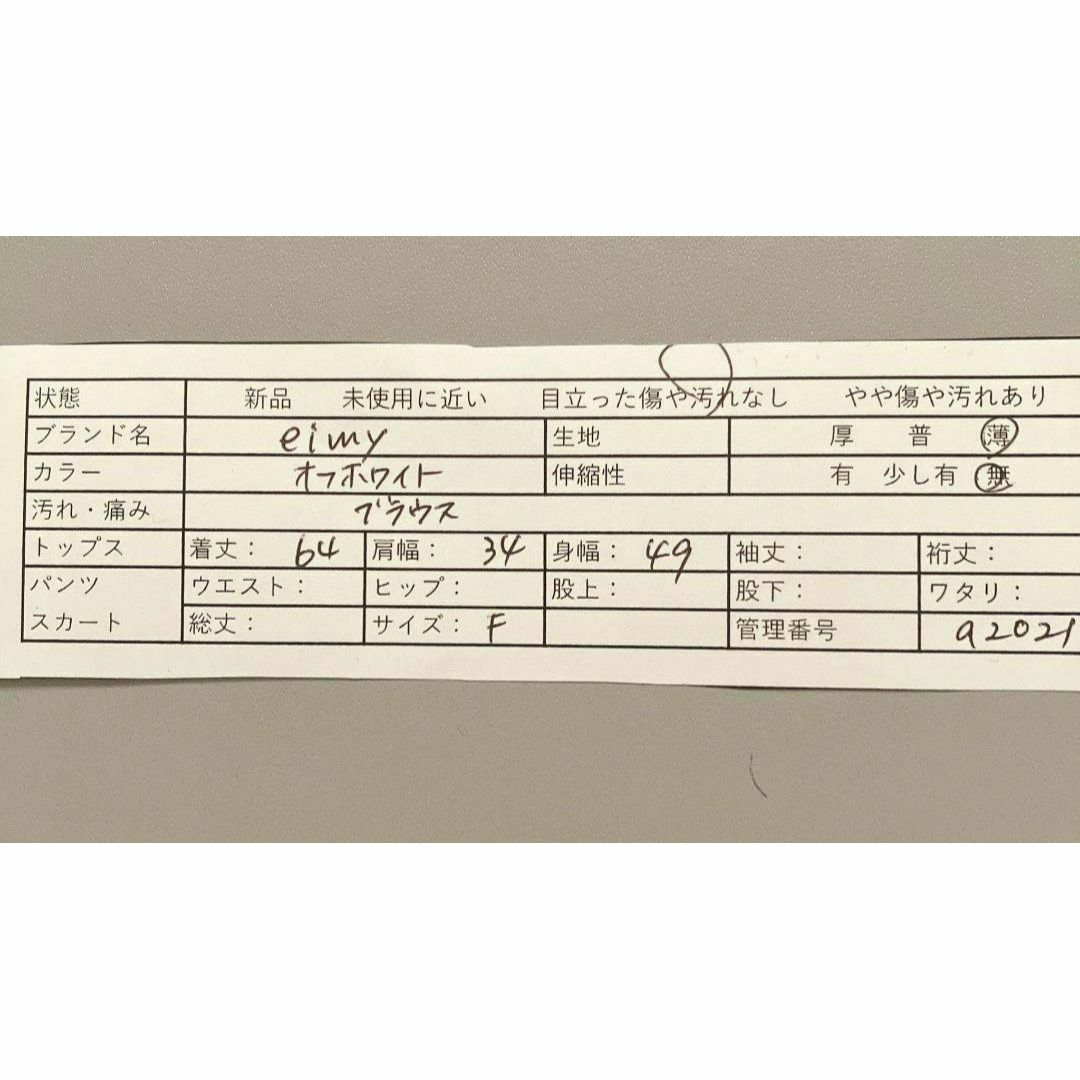 状態 新品 未使用に近い 目立った傷や汚れなし やや傷や汚れあり
ブランド名 eimy 生地 厚 普 薄
カラー オフホワイト 伸縮性 有 少し有 無
汚れ・痛み ブラウス
トップス 着丈： 64 肩幅： 34 身幅： 49 袖丈： 裄丈：
パンツ ウエスト： ヒップ： 股上： 股下： ワタリ：
スカート 総丈： サイズ： F 管理番号 a2021